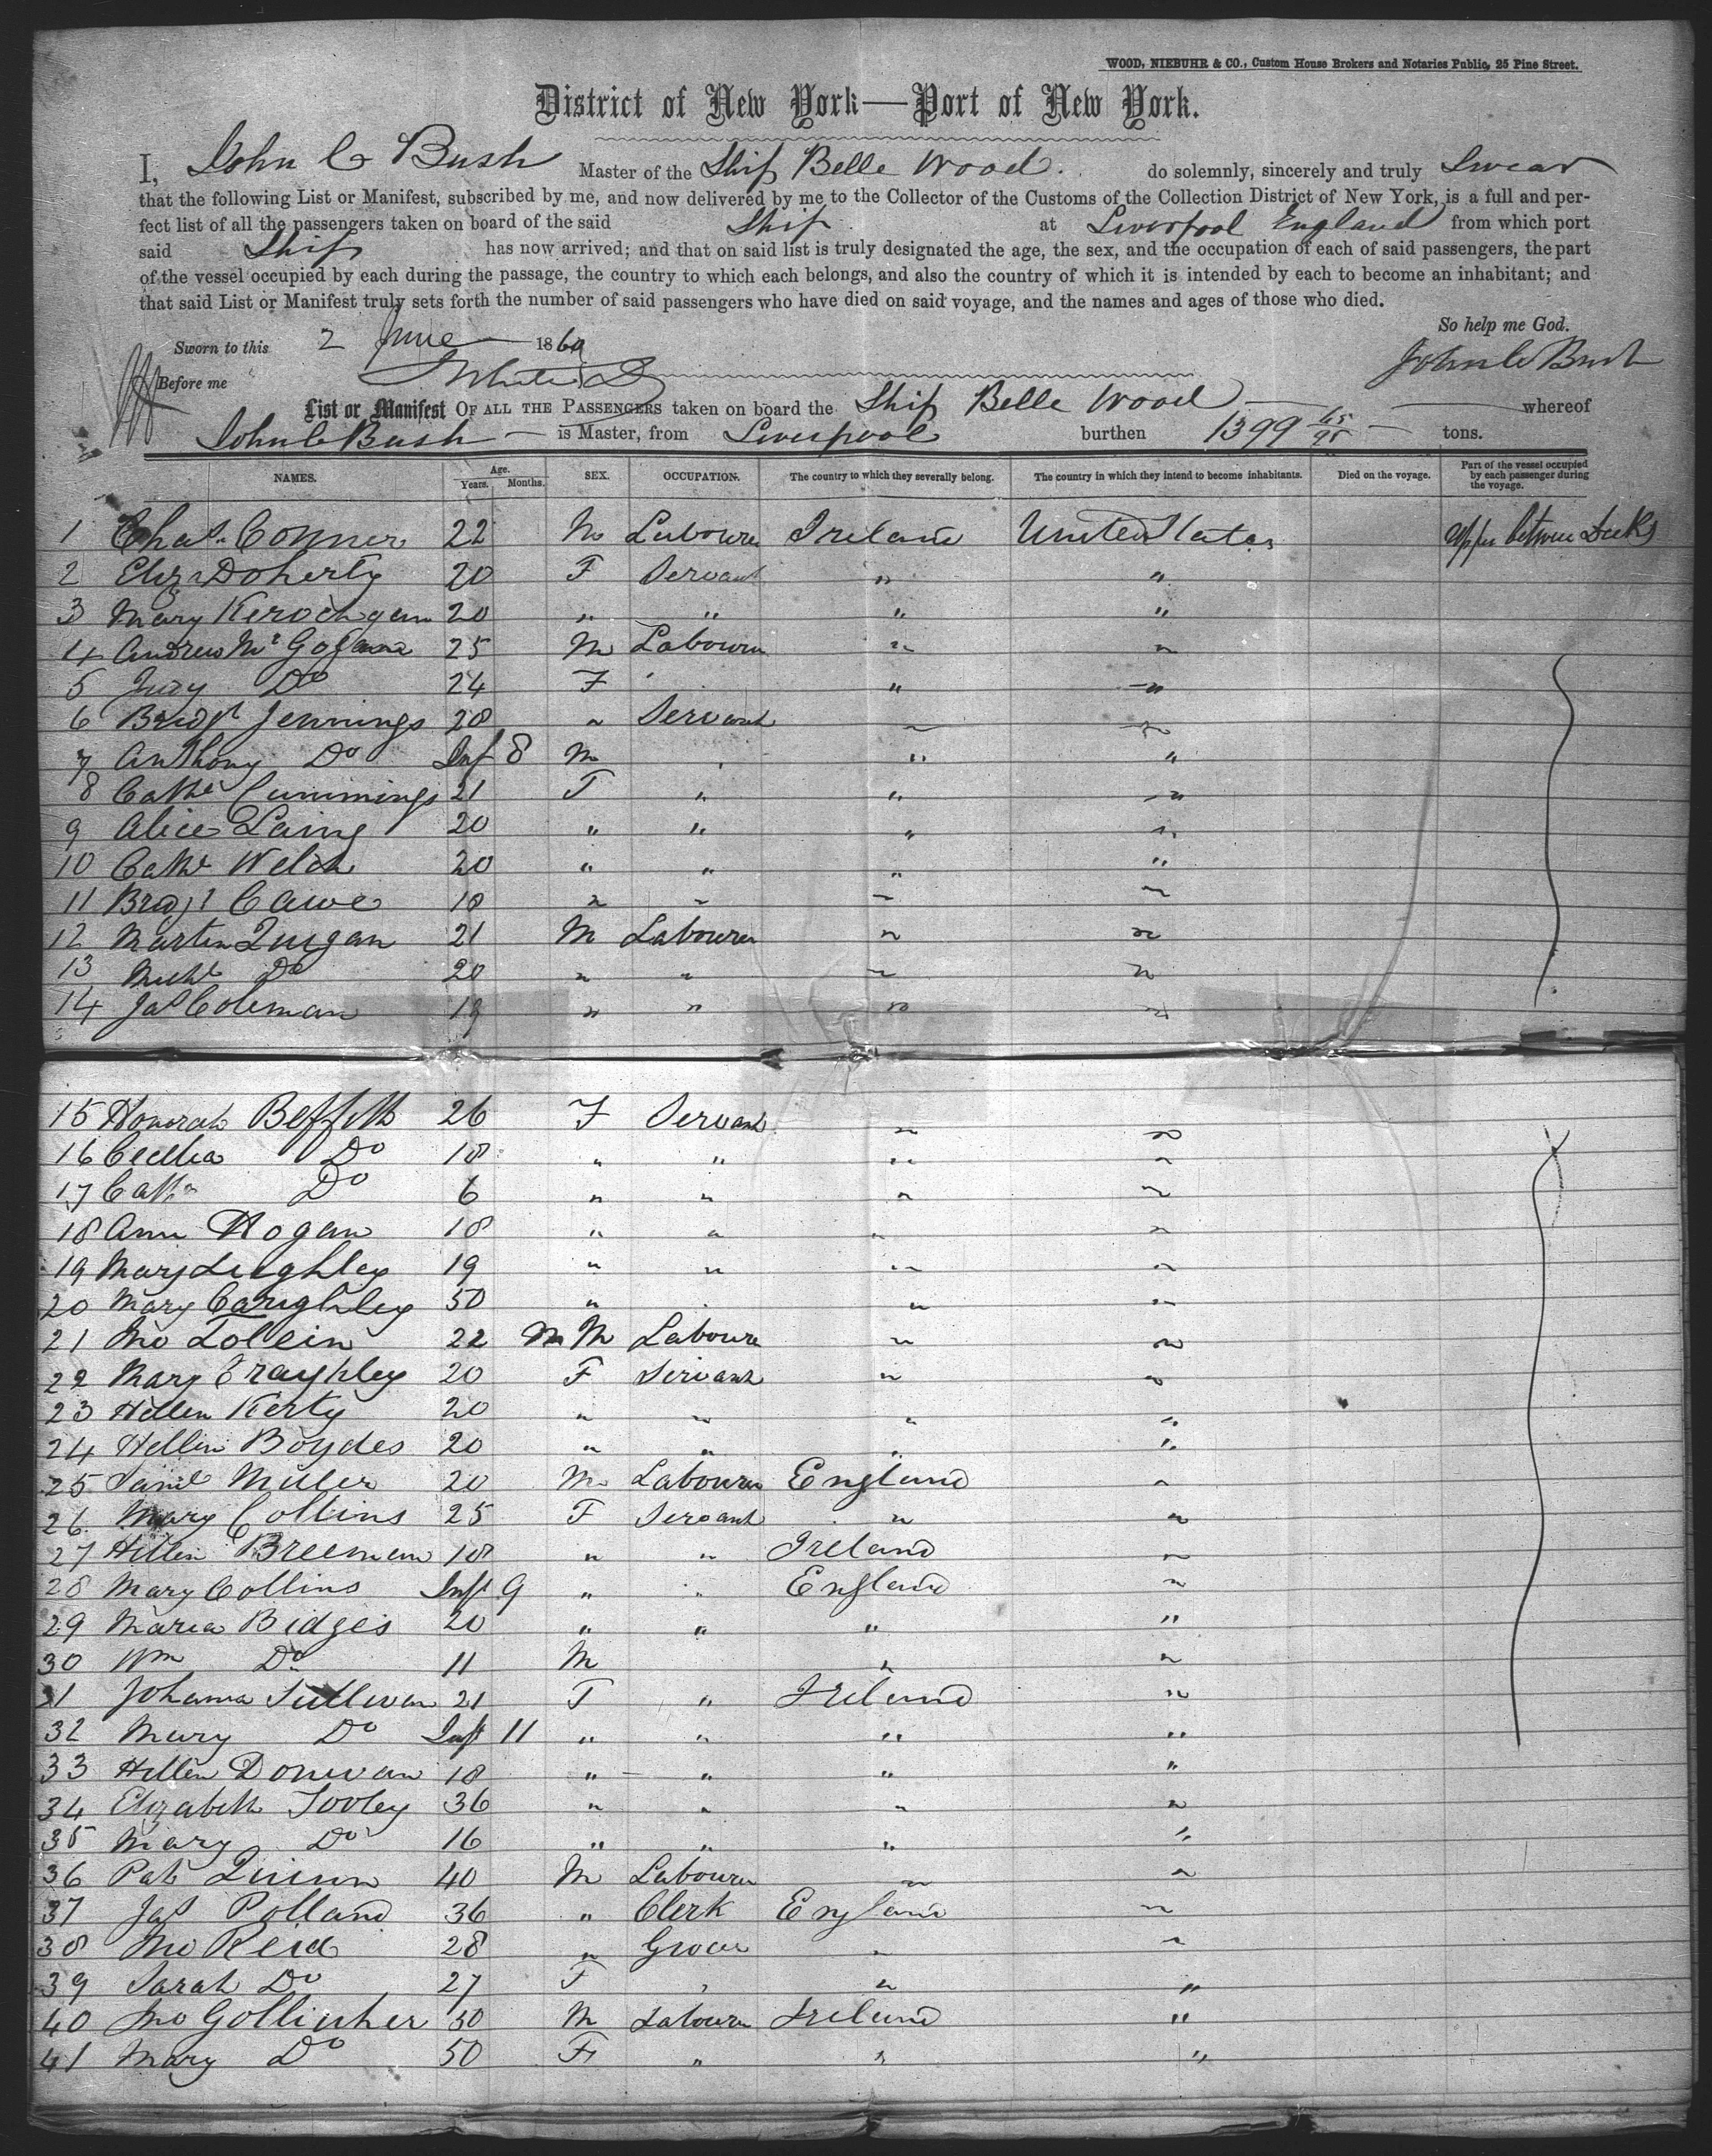 WOOD, NIEBUHR & CO., Custom House Brokers and Notaries Public, 25 Pine Street.
District of New York—Port of New York.
I, John C Bush Master of the Ship Belle Wood. do solemnly, sincerely and truly Swear
that the following List or Manifest, subscribed by me, and now delivered by me to the Collector of the Customs of the Collection District of New York, is a full and per-
fect list of all the passengers taken on board of the said Ship at Liverpool England from which port
said Ship has now arrived; and that on said list is truly designated the age, the sex, and the occupation of each of said passengers, the part
of the vessel occupied by each during the passage, the country to which each belongs, and also the country of which it is intended by each to become an inhabitant; and
that said List or Manifest truly sets forth the number of said passengers who have died on said voyage, and the names and ages of those who died.
So help me God.
Sworn to this 2 June 1860 John C Bush
Before me
List or Manifest OF ALL THE PASSENGERS taken on board the Ship Belle Wood whereof
John C Bush is Master, from Liverpool burthen 1399 tons.
NAMES. Age. Years. Months. SEX. OCCUPATION. The country to which they severally belong. The country in which they intend to become inhabitants. Died on the voyage. Part of the vessel occupied by each passenger during the voyage.
1 Chas. Conner 22 M Labourer Ireland United States upper between Decks
2 Eliz Doherty 20 F Servant " "
3 Mary 20 " " " "
4 Andrew Mc 25 M Labourer " "
5 Do 24 F " "
6 Bridgt Jennings 28 " Servant " "
7 Anthony Do Inf 8 M " "
8 Cathe Cummings 21 F " " "
9 Alice Laing 20 " " " "
10 Cathe Welch 20 " " " "
11 Bridgt Cawe 18 " " " "
12 Martin Quigan 21 M Labourer " "
13 Michl Do 20 " " " "
14 Jas Coleman 19 " " " "
15 Honorah 26 F Servant " "
16 Cecilia Do 18 " " " "
17 Cathe Do 6 " " " "
18 Ann Hogan 18 " " " "
19 Mary Leighley 19 " " " "
20 Mary Caughley 50 " " "
21 Jno Tollein 22 M M Labourer " "
22 Mary Craughley 20 F Servant " "
23 Hellen Kerty 20 " " " "
24 Hellen Boydes 20 " " " "
25 Danl Miller 20 M Labourer England "
26 Mary Collins 25 F Servant " "
27 Hellen Breeman 18 " " Ireland "
28 Mary Collins Inft 9 " " England "
29 Maria Bidges 20 " " " "
30 Wm Do 11 M " "
31 Johanna Sullivan 21 F " Ireland "
32 Mary Do Inft 11 " " " "
33 Hellen Donivan 18 " " " "
34 Elizabeth Tooley 36 " " " "
35 Mary Do 16 " " " "
36 Pat Quinn 40 M Labourer " "
37 Jas Polland 36 " Clerk England "
38 Jno Reid 28 " Grocer " "
39 Sarah Do 27 F " " "
40 Jno Gollieher 50 M Labourer Ireland "
41 Mary Do 50 F " " "